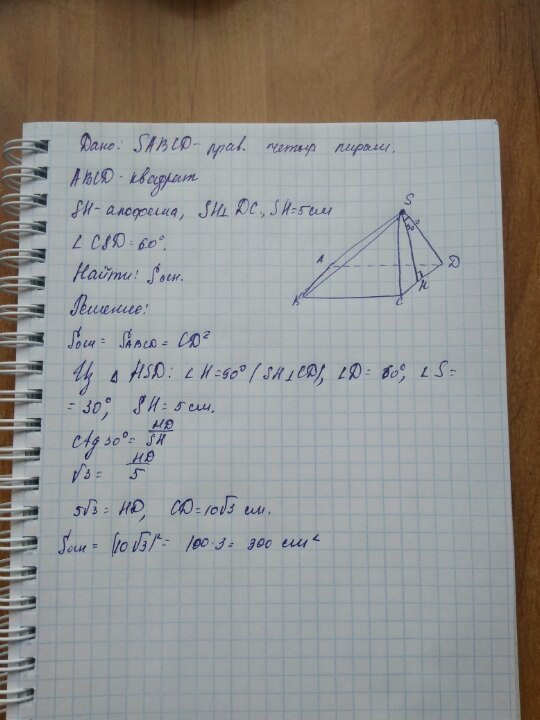 Дано: SABCD - прав. четыр пирам.
ABCD - квадрат
SH - апофема, SH⊥DC, SH=5см
∠CSD=60°.
Найти: Sосн.
Решение:
Sосн = SABCD = CD²
Из Δ HSD: ∠H=90° (SH⊥CD), ∠D= 60°, ∠S=
=30°, SH=5см.
ctg 30° = HD/SH
√3 = HD/5
5√3 = HD, CD=10√3 см.
Sосн = (10√3)² = 100·3 = 300 см²
S
A
D
B
C
H